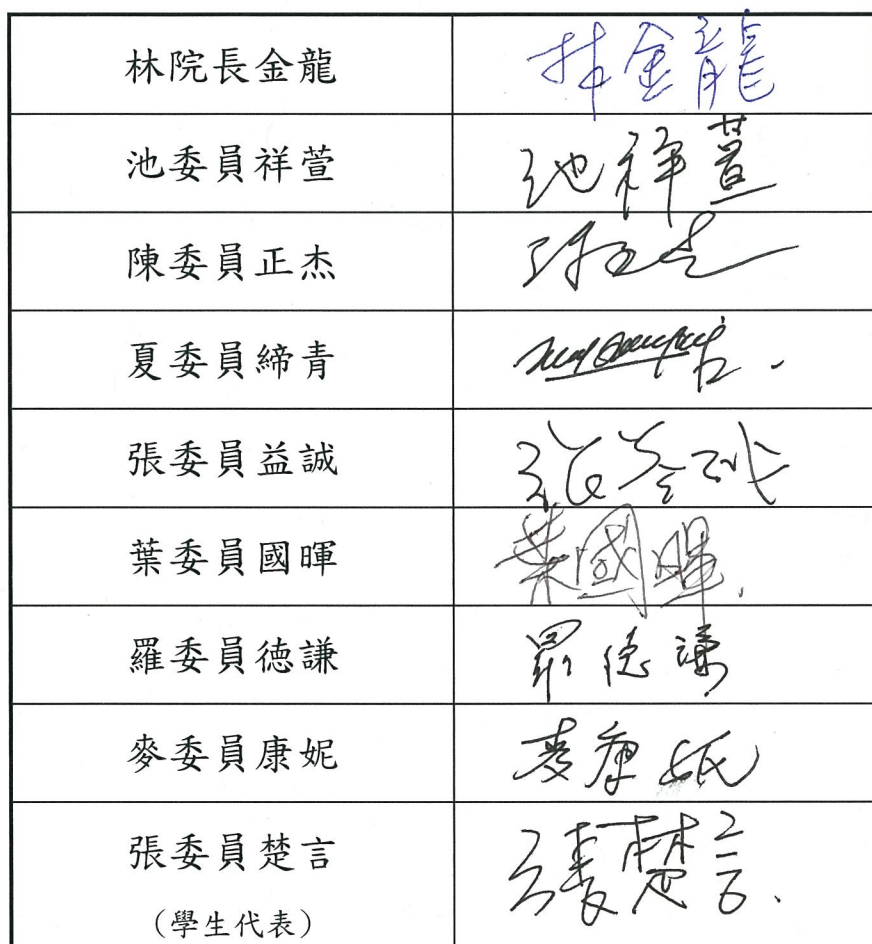 林院長金龍 林金龍
池委員祥萱 池祥萱
陳委員正杰
夏委員締青
張委員益誠 張益誠
葉委員國暉 葉國暉
羅委員德謙 羅德謙
麥委員康妮 麥康妮
張委員楚言 張楚言
(學生代表)